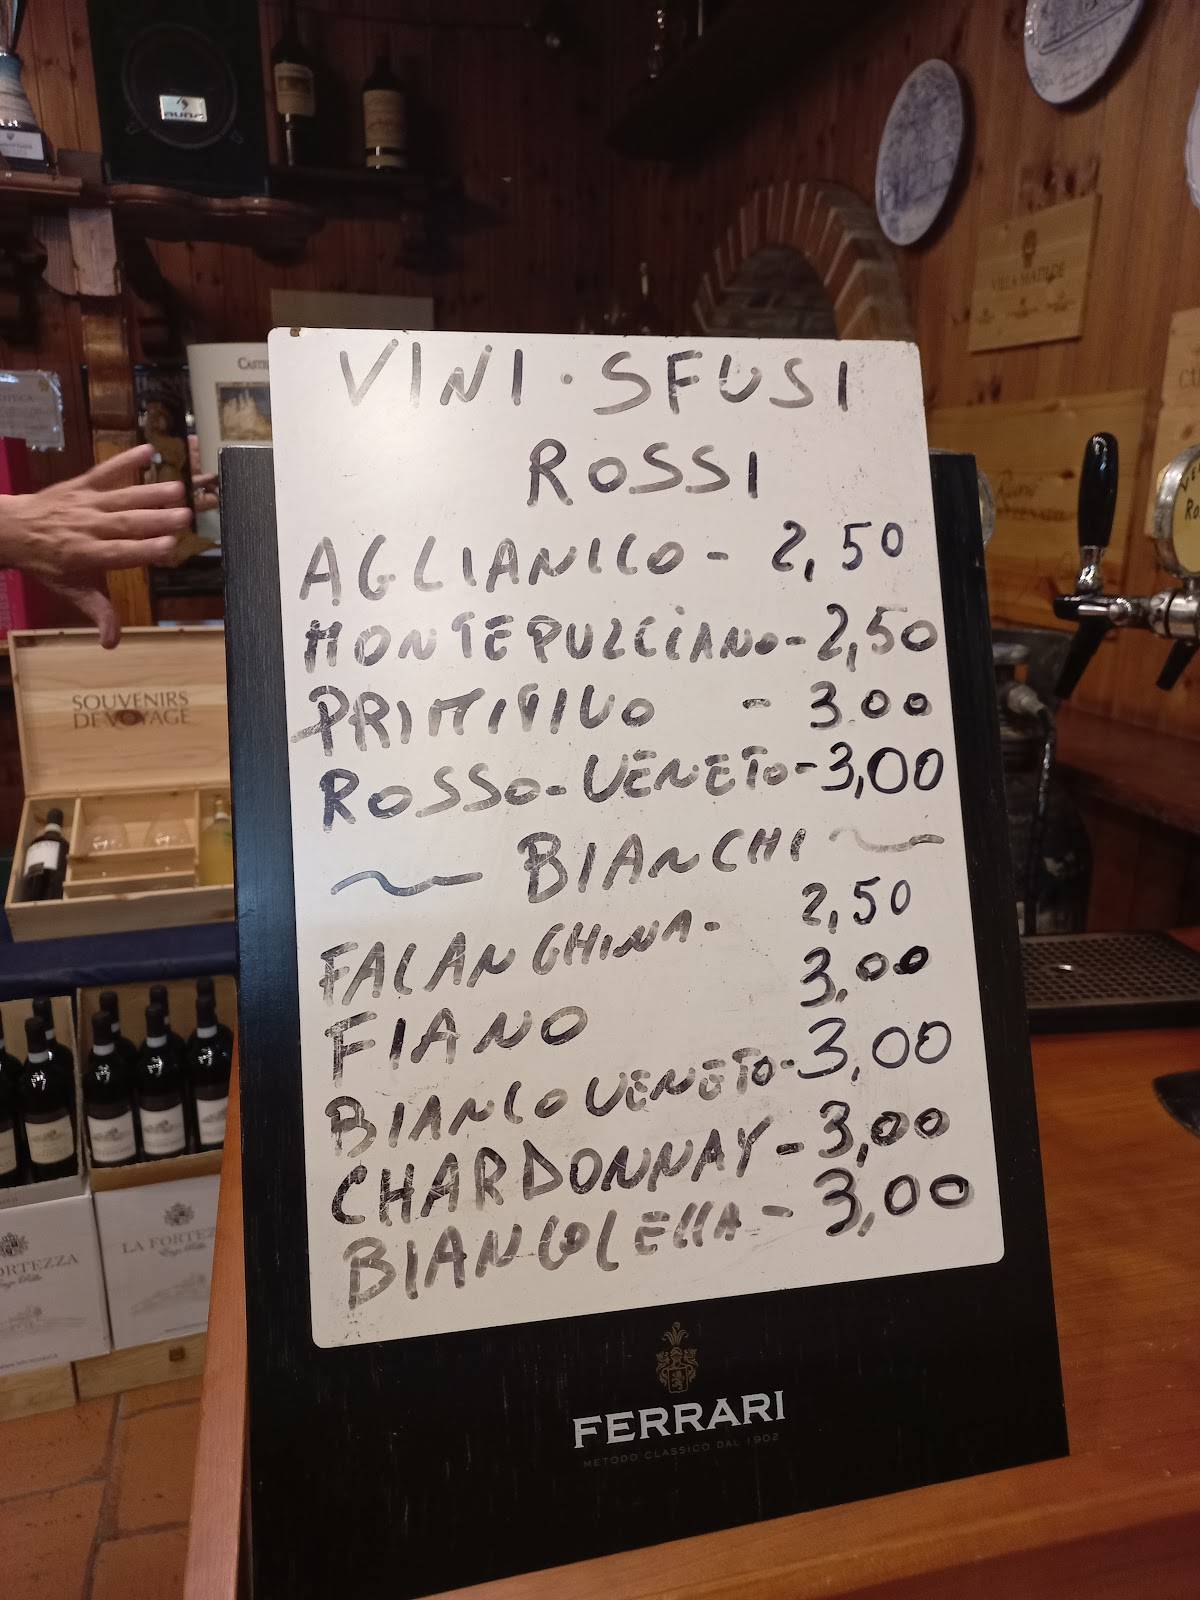 VINI · SFUSI
ROSSI
AGLIANICO - 2,50
MONTEPULCIANO - 2,50
PRIMITIVO - 3.00
ROSSO - VENETO - 3,00
~ BIANCHI ~
FALANGHINA - 2,50
FIANO 3.00
BIANCO VENETO - 3,00
CHARDONNAY - 3,00
BIANCOLELLA - 3,00
FERRARI
METODO CLASSICO DAL 1902
auna
VILLA MATILDE
SOUVENIRS
DE VOYAGE
LA FORTEZZA